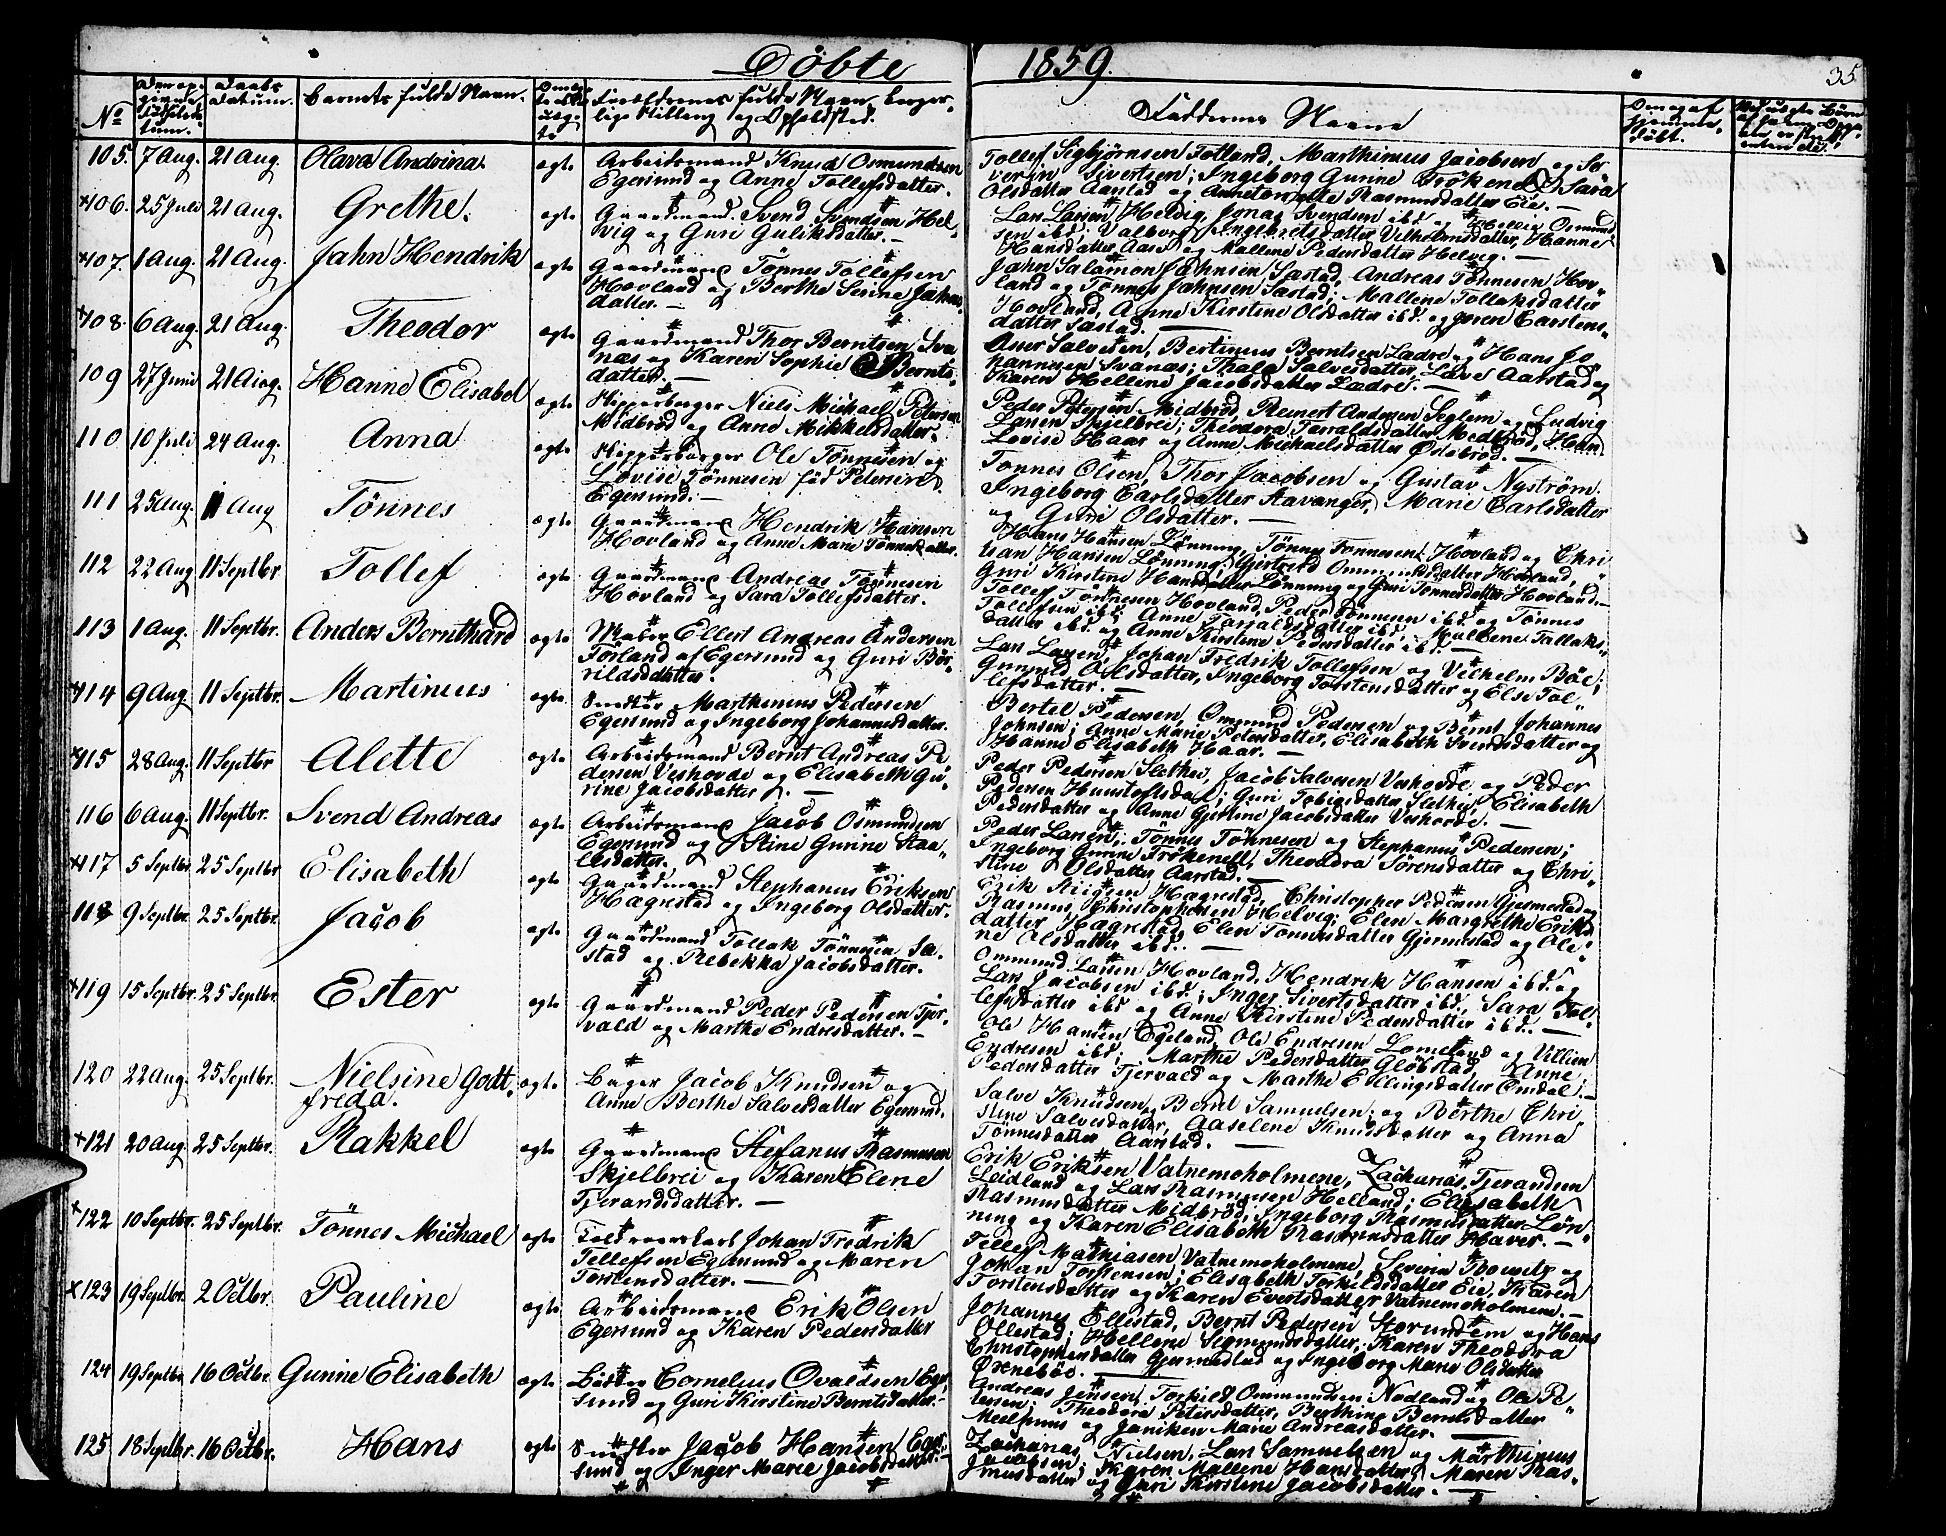 Döbte 1859.
35
No
Barnets fulde Navn.
Foreldrenes fulde Navn, borger-
lige Stilling og Opholdssted.
Faddernes Navne
105. 7 Aug. 21 Aug. Olava Andrina. ægte Arbeidsmand Knud Osmundsen
Egersund og Anne Tollefsdatter.
Tollef Sigbjörnsen Totland, Marthinius Jacobsen og Se-
verin Sivertsen; Ingeborg Gurine Frökenel Sara
Olsdatter Aarstad og Rasmusdatter Eie.
106. 25 Juli 21 Aug. Grethe. ægte Gaardmand Svend Svendsen Hel-
vig og Guri Guliksdatter.
Lars Larsen Helvig, Jonas Svendsen ibd. og Osmund-
sen ibd; Valborg Ingebretsdatter, Vilhelmsdatter, Hanne
Hansdatter Aase og Mallene Pedersdatter Helvig.
107. 1 Aug. 21 Aug. Jahn Hendrik ægte Gaardmand Tönnes Tollefsen
Hovland og Berthe Serine Jahns-
datter.
Jahn Salamon Jahnsen Sæstad, Andreas Tönnesen Hov-
land og Tönnes Jahnsen Sæstad; Mallene Tollaksdatter
Hovland, Anne Kirstine Olsdatter ibd. og Joren Carstens-
datter Sæstad.
108. 6 Aug. 21 Aug. Theodor ægte Gaardmand Thor Berntsen Sva-
næs og Karen Sophie Bernts-
datter.
Osser Salvesen, Bertinius Berntsen Ladre og Hans Jo-
hannesen Svanæs; Thale Salvesdatter, Lave Aarstad og
Karen Hellene Jacobsdatter Ladre.
109 27 Juni 21 Aug. Hanne Elisabet ægte Skipperborger Niels Michael Petersen
Midbröd og Anne Mikkelsdatter.
Peder Petersen Midbröd, Reinert Andersen Seglem og Ludvig
Larsen Skjelbrei; Theodora Tarraldsdatter Medbröd, Hans
Lovise Haar og Anne Michaelsdatter Öslebröd.
110 10 Juli 24 Aug. Anna ægte Skipperborger Ole Tönnesen og
Lovise Tönnesen föd Petersen
Egersund.
Tönnes Olsen, Thor Jacobsen og Gustav Nyström.
Ingeborg Carlsdatter Stavanger, Marie Carlsdatter
og Guri Olsdatter.
111 25 Aug. 11 Aug Tönnes ægte Gaardmand Hendrik Hansen
Hovland og Anne Marie Tönnesdatter.
Hans Hansen Lönning, Tönnes Tönnesen Hovland og Chri-
stian Hansen Lönning; Gjertrud Ommundsdatter Hovland,
Guri Kirstine Hansdatter Lönning og Guri Tönnesdatter Hovland.
112 22 Aug 11 Septbr Tollef ægte Gaardmand Andreas Tönnesen
Hovland og Sara Tollefsdatter.
Tollef Tönnesen Hovland, Peder Tönnesen ibd. og Tönnes
Tollefsen ibd; Anne Tarraldsdatter ibd, Mallene Tollaks-
datter ibd. og Anne Kirstine Pedersdatter ibd.
113 1 Aug. 11 Septbr. Anders Bernthard ægte Maber Ellert Andreas Andersen
Forland af Egersund og Guri Bör-
rildsdatter.
Lars Larsen, Johan Fredrik Tollefsen og Vilhelm Böe;
Gunild Olsdatter, Ingeborg Torstensdatter og Else Tol-
lefsdatter.
114 9 Aug 11 Septbr. Martinius ægte Snedker Marthinius Pedersen
Egersund og Ingeborg Johannesdatter.
Bertel Pedersen, Ommund Pedersen og Bernt Johannes
Johnsen; Anne Marie Petersdatter, Elisabeth Svendsdatter og
Hanne Elisabeth Haar.
115 28 Aug. 11 Septbr Alette ægte Arbeidsmand Bernt Andreas Pe-
dersen Veshovde og Elisabeth Gu-
rine Jacobsdatter
Peder Pedersen Slethei, Jacob Salvesen Veshovde og Peder
Pedersen; Guri Tobiasdatter Slethei, Elisabeth
Pedersdatter og Anne Gurine Jacobsdatter Veshovde.
116 6 Aug. 11 Septbr. Svend Andreas ægte Arbeidsmand Jacob Osmundsen
Egersund og Stine Gurine Staa-
lesdatter.
Peder Larsen, Tönnes Tönnesen og Stephanus Pedersen;
Ingeborg Gurine Frökenell, Theodora Sörensdatter og Chri-
stine Olsdatter Aarstad.
117 5 Septbr 25 Septbr Elisabeth ægte Gaardmand Stephanus Eriksen
Hægrestad og Ingeborg Olsdatter.
Erik Stigsen Hægrestad, Christopher Pedersen Gjermestad og
Rasmus Christophersen Helvig; Elen Margrethe Eriks-
datter Hægrestad, Elen Tönnesdatter Gjermestad og Ole-
ne Olsdatter ibd.
118 9 Septbr. 25 Septbr. Jacob ægte Gaardmand Tollak Tönnesen Sæ-
stad og Rebekka Jacobsdatter.
Ommund Larsen Hovland, Hendrik Hansen ibd. og
Lars Jacobsen ibd.; Inger Sivertsdatter ibd., Sara Tol-
lefsdatter ibd og Anne Kirstine Pedersdatter ibd.
119 15 Septbr. 25 Septbr. Ester ægte Gaardmand Peder Pedersen Tjer-
vald og Marthe Endresdatter.
Ole Hansen Egeland, Ole Endresen Lomeland og Villum
Endresen ibd; Marthe Pedersdatter Glöbstad, Anne
Pedersdatter Tjervald og Marthe Ellingsdatter Omdal.
120 22 Aug. 25 Septbr. Nielsine Godt-
freda. ægte Bager Jacob Knudsen og
Anne Berthe Salvesdatter Egersund.
Salve Knudsen, Bernt Samuelsen og Berthe Chri-
stine Salvesdatter, Aaselene Knudsdatter og Anna
Tönnesdatter Aarstad.
121 20 Aug. 25 Septbr. Rakkel ægte Gaardmand Stefanus Rasmussen
Skjelbrei og Karen Elene
Tjerandsdatter.
Erik Eriksen Vatnemoholmene, Zacharias Tjerandsen
Leidland og Lars Rasmussen Helland; Elisabeth
Rasmusdatter Midbröd, Ingeborg Rasmusdatter Lön-
ning og Karen Elisabeth Rasmusdatter Haver.
122 10 Septbr. 25 Septbr. Tönnes Michael ægte Johan Fredrik
Tellefsen Egersund og Maren
Torstensdatter.
Tellef Mathiasen Vatnemoholmene, Severin Thowsen og
Johan Torstensen; Elisabeth Torkildsdatter Eie, Karen
Torstensdatter og Karen Evertsdatter Vatnemoholmene.
123 19 Septbr. 2 Octbr. Pauline ægte Arbeidsmand Erik Olsen
Egersund og Karen Pedersdatter
Johannes Ellestad, Bernt Pedersen og Hans
Ollestad; Hellene Sigmundsdatter, Karen Theodora
Christophersdatter Gjermestad og Ingeborg Marie Olsdatter
Öreneböe.
124 19 Septbr 16 Octbr. Gurine Elisabeth ægte Bödker Cornelius Ovaldsen Eger-
sund og Guri Kirstine Berntsdatter.
Andreas Jensen, Torkild Ommundsen Nodland og Ole Pe-
tersen; Theodora Petersdatter, Berthine Berntsdatter
og Janiken Marie Andreasdatter.
125 18 Septbr. 16 Octbr. Hans ægte Jacob Hansen Eger-
sund og Inger Marie Jacobsdatter.
Zacharias Nielsen, Lars Samuelsen og Marthinius
Jacobsen; Karen Mallene Hansdatter, Maren Ras-
musdatter og Guri Kirstine Jacobsdatter.